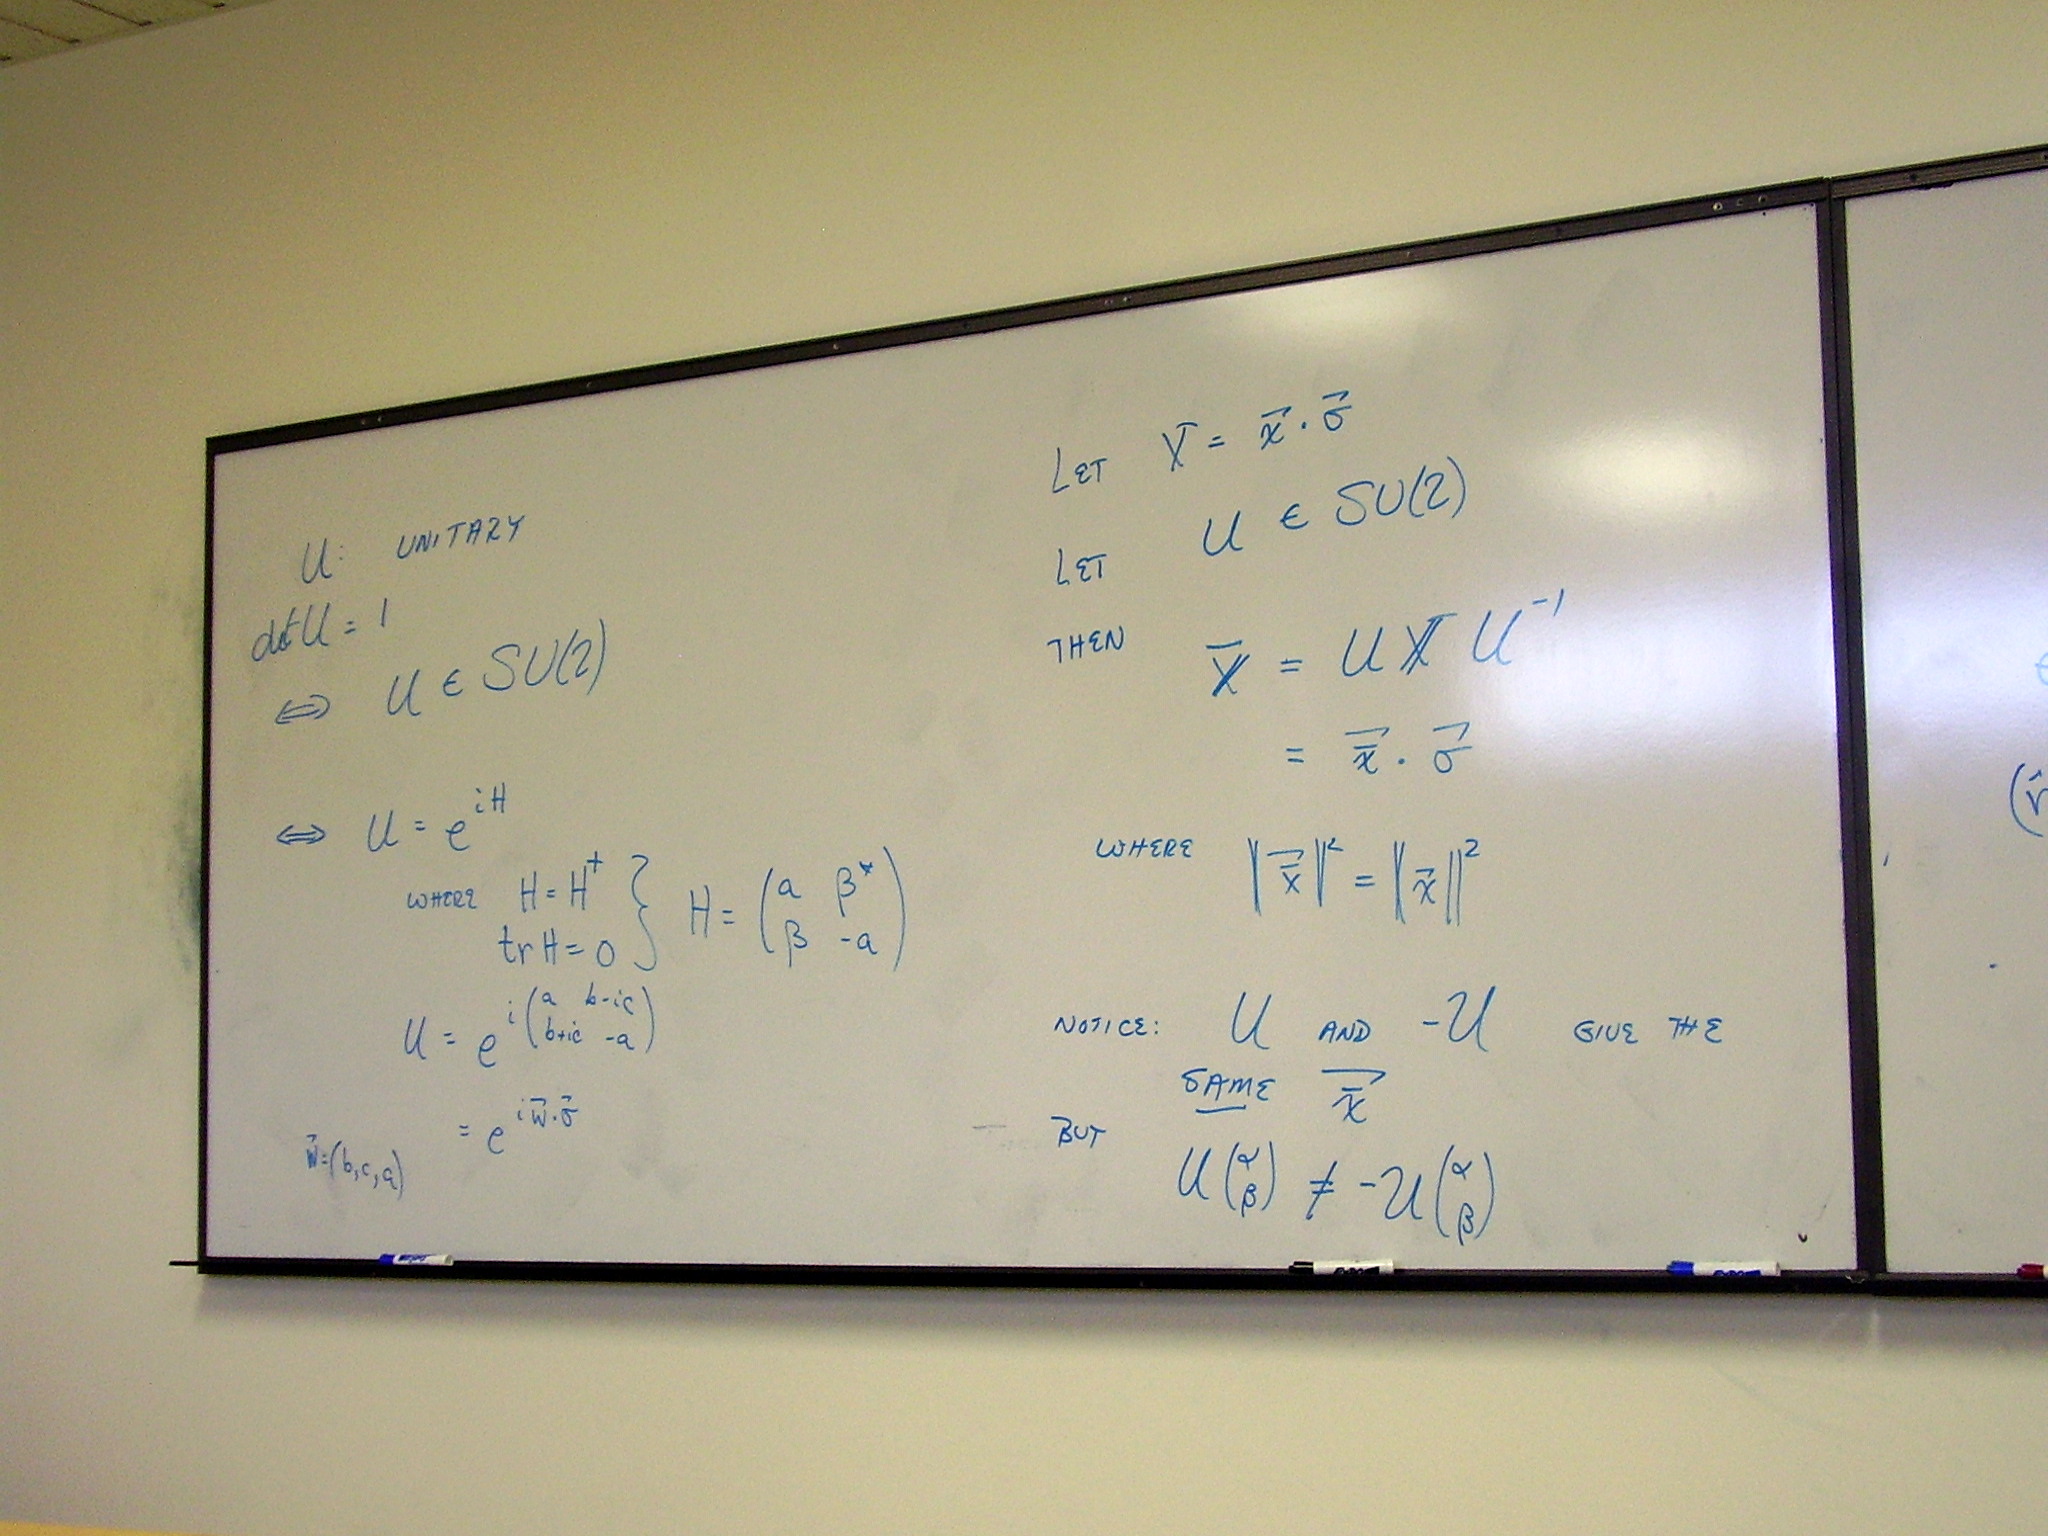 U: UNITARY
det U = 1
⇔ U ∈ SU(2)
⇔ U = e^{iH}
WHERE H = H^† } H = (a β^* ; β -a)
tr H = 0
U = e^{i(a b-ic ; b+ic -a)}
= e^{i w⃗·σ⃗}
w⃗=(b,c,a)
LET X = x⃗ · σ⃗
LET U ∈ SU(2)
THEN X̄ = U X U^{-1}
= x̄⃗ · σ⃗
WHERE ||x̄⃗||² = ||x⃗||²
NOTICE: U AND -U GIVE THE
SAME x̄⃗
BUT
U(α ; β) ≠ -U(α ; β)